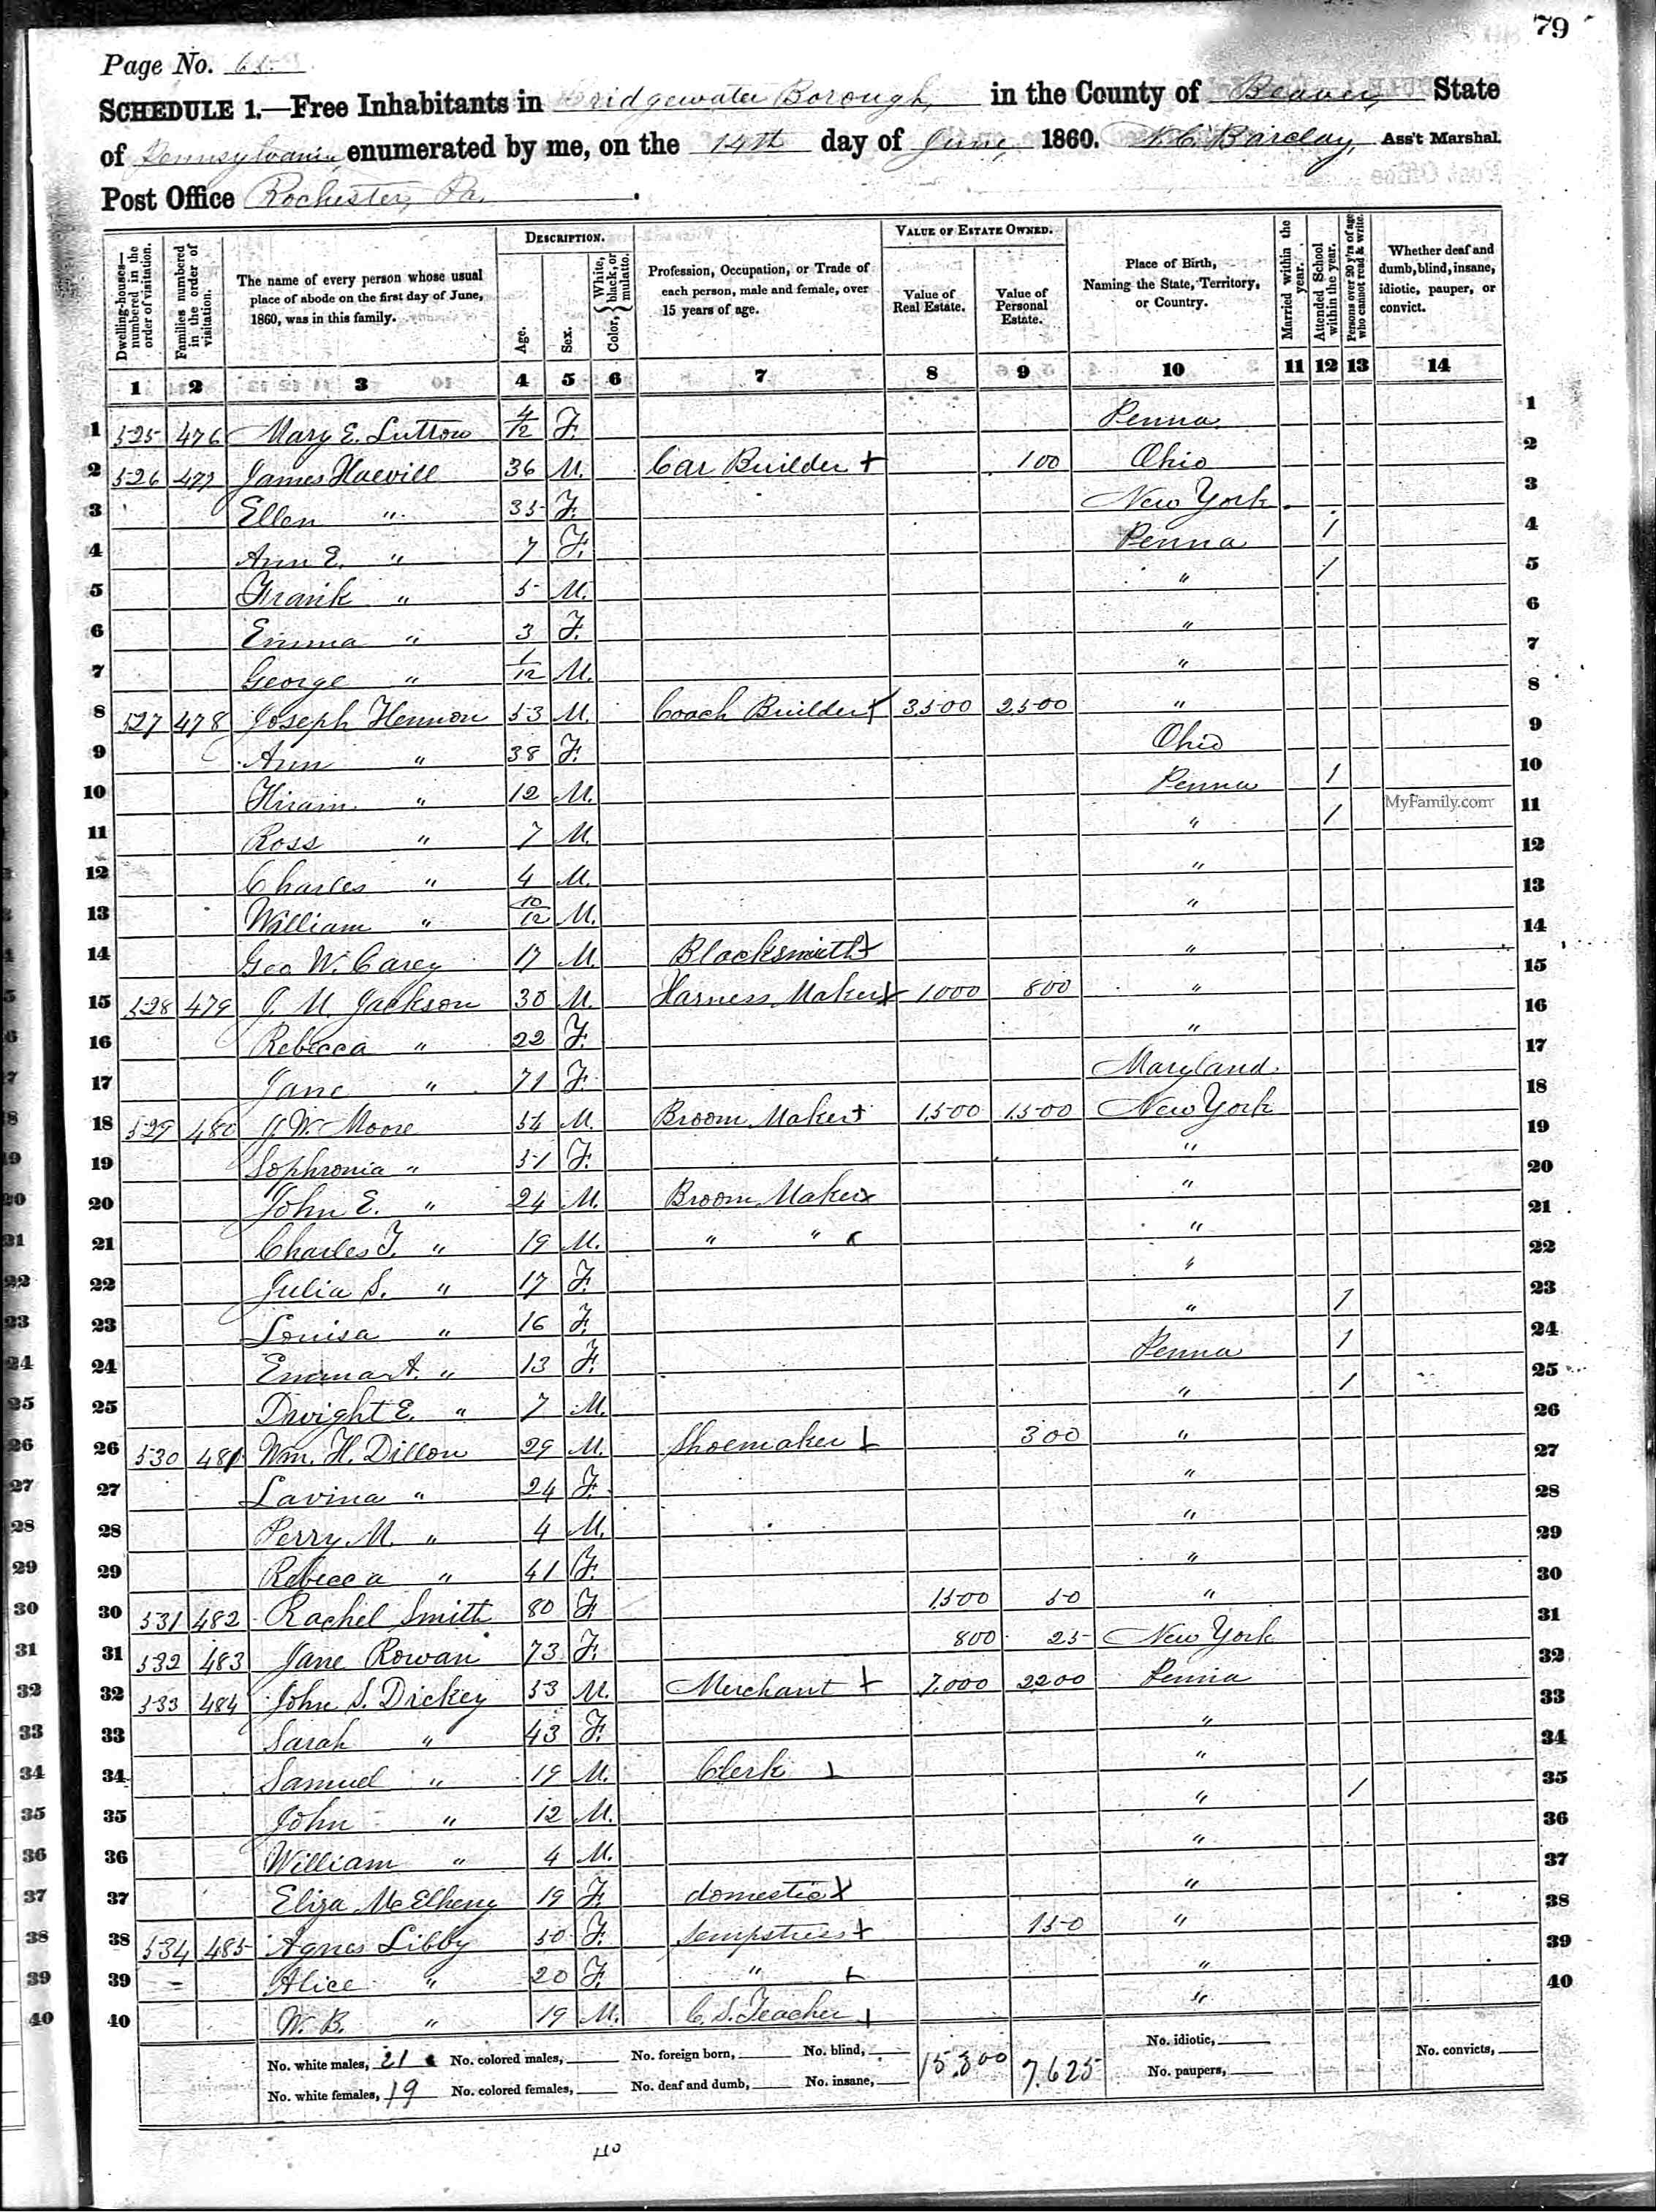 79
Page No. 65
SCHEDULE 1.—Free Inhabitants in Bridgewater Borough, in the County of Beaver, State
of Pennsylvania, enumerated by me, on the 14th day of June, 1860. N. C. Barclay, Ass't Marshal.
Post Office Rochester, Pa.
Dwelling-houses—numbered in the order of visitation.
Families numbered in the order of visitation.
The name of every person whose usual place of abode on the first day of June, 1860, was in this family.
DESCRIPTION.
Age.
Sex.
Color, { White, black, or mulatto.
Profession, Occupation, or Trade of each person, male and female, over 15 years of age.
VALUE OF ESTATE OWNED.
Value of Real Estate.
Value of Personal Estate.
Place of Birth, Naming the State, Territory, or Country.
Married within the year.
Attended School within the year.
Persons over 20 y'rs of age who cannot read & write.
Whether deaf and dumb, blind, insane, idiotic, pauper, or convict.
1 2 3 4 5 6 7 8 9 10 11 12 13 14
1 525 476 Mary E. Sutton 4/12 F. Penna. 1
2 526 477 James 36 M. Car Builder + 100 Ohio 2
3 Ellen " 35 F. New York 3
4 Ann E. " 7 F. Penna 1 4
5 Frank " 5 M. " 1 5
6 Emma " 3 F. " 6
7 George " 1/12 M. " 7
8 527 478 Joseph Hennon 53 M. Coach Builder + 3500 2500 " 8
9 Ann " 38 F. Ohio 9
10 Hiram " 12 M. Penna 1 10
11 Ross " 7 M. " 1 11
MyFamily.com
12 Charles " 4 M. " 12
13 William " 10/12 M. " 13
14 Geo W. Carey 17 M. Blacksmith + " 14
15 528 479 J. M. Jackson 30 M. Harness Maker + 1000 800 " 15
16 Rebecca " 22 F. " 16
17 Jane " 71 F. Maryland 17
18 529 480 J. W. Moore 54 M. Broom Maker + 1500 1500 New York 18
19 Sophronia " 51 F. " 19
20 John E. " 24 M. Broom Maker x " 20
21 Charles T. " 19 M. " " x " 21
22 Julia S. " 17 F. " 22
23 Louisa " 16 F. " 1 23
24 Emma A. " 13 F. Penna 1 24
25 Dwight E. " 7 M. " 1 25
26 530 481 Wm. H. Dillon 29 M. Shoemaker + 300 " 26
27 Lavina " 24 F. " 27
28 Perry M. " 4 M. " 28
29 Rebecca " 41 F. " 29
30 531 482 Rachel Smith 80 F 1500 50 " 30
31 532 483 Jane Rowan 73 F. 800 25 New York 31
32 533 484 John S. Dickey 53 M. Merchant + 7.000 2200 Penna 32
33 Sarah " 43 F. " 33
34 Samuel " 19 M. Clerk + " 34
35 John " 12 M. " 1 35
36 William " 4 M. " 36
37 Eliza McElheny 19 F. domestic x " 37
38 534 485 Agnes Libby 50 F. Sempstress + 150 " 38
39 Alice " 20 F. " + " 39
40 W. B. " 19 M. C. S. Teacher + " 40
No. white males, 21 No. colored males, No. foreign born, No. blind, 15.300 7.625 No. idiotic, No. convicts,
No. white females, 19 No. colored females, No. deaf and dumb, No. insane, No. paupers,
40